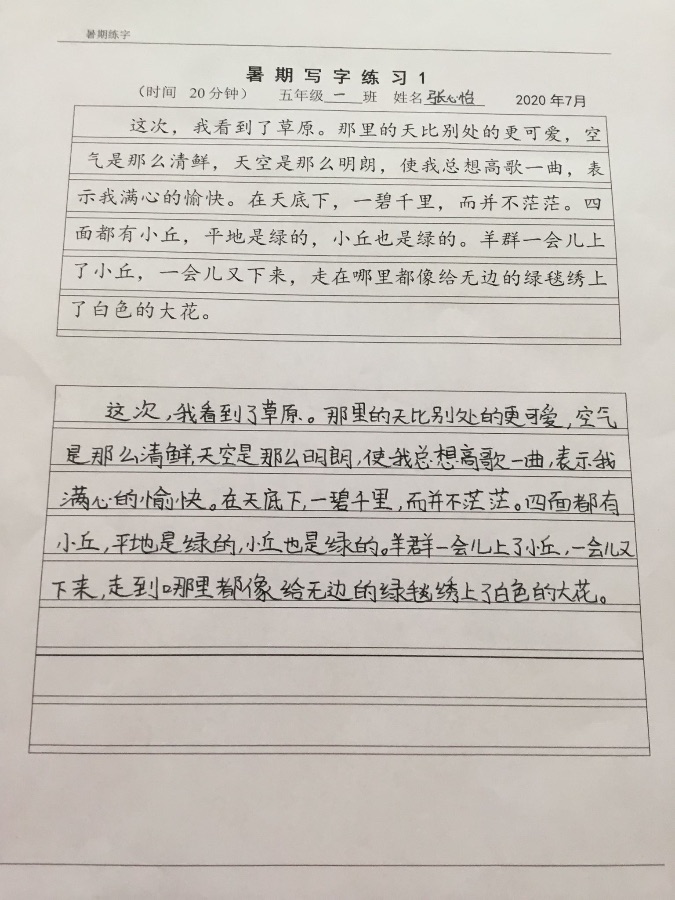 暑期练字
暑期写字练习1
（时间 20分钟） 五年级一班 姓名张心怡 2020年7月
这次，我看到了草原。那里的天比别处的更可爱，空
气是那么清鲜，天空是那么明朗，使我总想高歌一曲，表
示我满心的愉快。在天底下，一碧千里，而并不茫茫。四
面都有小丘，平地是绿的，小丘也是绿的。羊群一会儿上
了小丘，一会儿又下来，走在哪里都像给无边的绿毯绣上
了白色的大花。
这次，我看到了草原。那里的天比别处的更可爱，空气
是那么清鲜，天空是那么明朗，使我总想高歌一曲，表示我
满心的愉快。在天底下，一碧千里，而并不茫茫。四面都有
小丘，平地是绿的，小丘也是绿的。羊群一会儿上了小丘，一会儿又
下来，走到哪里都像给无边的绿毯绣上了白色的大花。